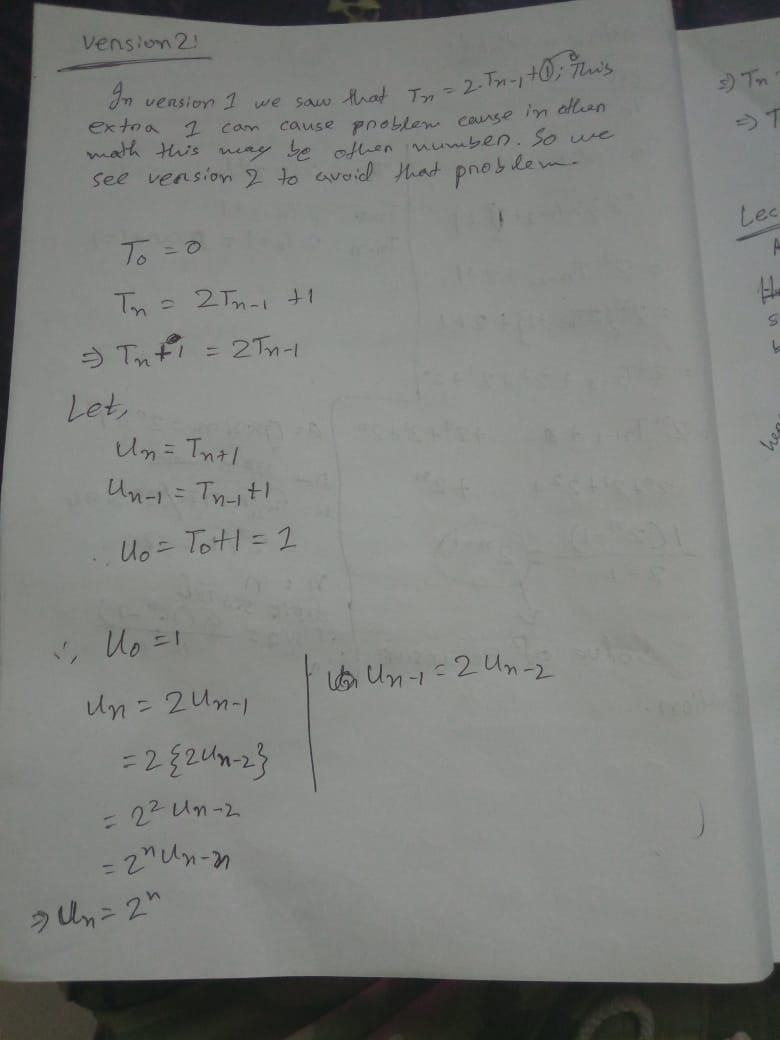 Version 2:
In version 1 we saw that Tn = 2.Tn-1 + 1; This
extra 1 can cause problem cause in other
math this may be other number. So we
see version 2 to avoid that problem.
T0 = 0
Tn = 2Tn-1 + 1
⇒ Tn + 1 = 2Tn-1
Let,
Un = Tn+1
Un-1 = Tn-1 + 1
∴ U0 = T0+1 = 1
∴ U0 = 1
Un = 2Un-1 | Un-1 = 2Un-2
= 2{2Un-2}
= 2² Un-2
= 2ⁿ Un-n
⇒ Un = 2ⁿ
⇒ Tn
⇒ T
Lec